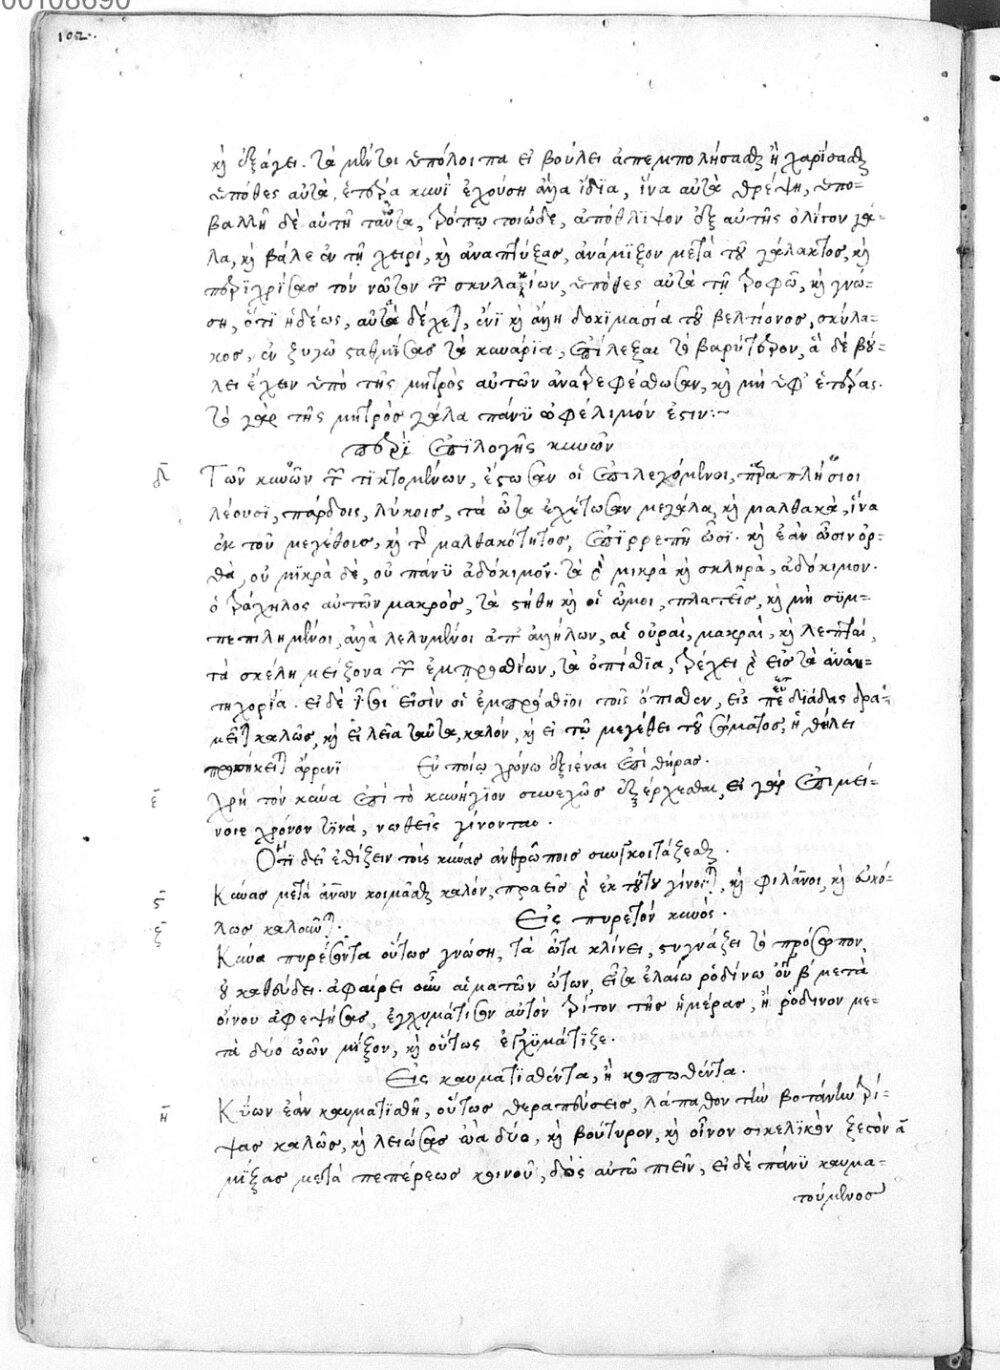 00108690
102.
καὶ ἐξάγει. τὰ μέντοι ὑπόλοιπα εἰ βούλει ἀπεμπολήσασθαι ἢ χαρίσασθαι
ὑπόθες αὐτὰ, ἑτέρα κυνὶ ἐχούση γάλα ἴδια, ἵνα αὐτὰ θρέψη, ὑπο-
βαλεῖν δὲ αὐτῆ ταῦτα, τρόπω τοιῶδε, ἀπόθλιψον ἐξ αὐτῆς ὀλίγον γά-
λα, καὶ βάλε ἐν τῆ χειρὶ, καὶ ἀναπτύξας, ἀνάμιξον μετὰ τοῦ γάλακτος, καὶ
περιχρίσας τὸν νῶτον τῶν σκυλακίων, ὑπόθες αὐτὰ τῆ τροφῶ, καὶ γνώ-
ση, ὅτι ἡδέως, αὐτὰ δέχεται, ἔνι καὶ ἄλλη δοκιμασία τοῦ βελτίονος, σκύλα-
κος, ἐν ζυγῶ σταθμίσας τὰ κυνάρια, ἐπίλεξαι τὸ βαρύτερον, ἃ δὲ βού-
λει ἔχειν ὑπὸ τῆς μητρὸς αὐτῶν ἀνατρεφέσθωσαν, καὶ μὴ ὑφ' ἑτέρας.
τὸ γὰρ τῆς μητρὸς γάλα πάνυ ὠφέλιμόν ἐστιν:~
περὶ ἐπιλογῆς κυνῶν
δ Τῶν κυνῶν τῶν τικτομένων, ἔστωσαν οἱ ἐπιλεγόμενοι, παραπλήσιοι
λέουσι, πάρδοις, λύκοις, τὰ ὦτα ἐχέτωσαν μεγάλα καὶ μαλθακὰ, ἵνα
ἐκ τοῦ μεγέθους, καὶ τῆς μαλθακότητος, ἐπιρρεπῆ ὦσι. καὶ ἐὰν ὦσιν ὀρ-
θὰ, οὐ μικρὰ δὲ, οὐ πάνυ ἀδόκιμον. τὰ γὰρ μικρὰ καὶ σκληρὰ, ἀδόκιμον.
ὁ τράχηλος αὐτῶν μακρὸς, τὰ στήθη καὶ οἱ ὦμοι, πλατεῖς, καὶ μὴ συμ-
πεπιλημένοι, ἀλλὰ λελυμένοι ἀπ' ἀλλήλων, αἱ οὐραὶ, μακραὶ, καὶ λεπταὶ,
τὰ σκέλη μείζονα τῶν ἐμπροσθίων, τὰ ὀπίσθια, τρέχει γὰρ εἰς τὰ ἀναν-
τη χορία. εἰ δὲ ἴσοι εἰσὶν οἱ ἐμπρόσθιοι τοῖς ὄπισθεν, εἰς πεδιάδας δρα-
μεῖται καλῶς, καὶ εἰ λεῖα ταῦτα, καλόν, καὶ εἰ τῶ μεγέθει τοῦ σώματος, ἡ θήλει
προσήκει ἄρρενι Ἐν ποίω χρόνω ἐξιέναι ἐπὶ θήρας.
ε χρὴ τὸν κύνα ἐπὶ τὸ κυνήγιον συνεχῶς ἐξέρχεσθαι, εἰ γὰρ ἐπιμεί-
νοιε χρόνον τινά, νωθεῖς γίνονται.
Ὅτι δεῖ ἐθίζειν τοὺς κύνας ἀνθρώποις συγκοιτάζεσθαι.
ς Κύνας μετὰ ἀνων κοιμᾶσθαι καλόν, πραεῖς γὰρ ἐκ τούτου γίνονται, καὶ φιλάνοι, καὶ εὐκό-
λως καλοῦνται. Εἰς πυρετὸν κυνός.
ζ Κύνα πυρέσσοντα οὕτως γνώση, τὰ ὦτα κλίνει, στυγνάζει τὸ πρόσωπον,
οὐ καθεύδει. ἀφαίρει οὖν αἱματῶν ὤτων, εἶτα ἐλαίω ῥοδίνω β μετὰ
οἴνου ἀφεψήσας, ἐγχυμάτισον αὐτὸν τρίτον τῆς ἡμέρας, ἢ ῥόδινον με-
τὰ δύο ὠῶν μίξον, καὶ οὕτως ἐγχυμάτιζε.
Εἰς καυματισθέντα, ἢ κοπωθέντα.
η Κύων ἐὰν καυματισθῆ, οὕτως θεραπεύσεις, λάπαθον τὴν βοτάνην τρί-
ψας καλῶς, καὶ λειώσας ὠὰ δύο, καὶ βούτυρον, καὶ οἶνον σικελικὸν ξεστὸν α
μίξας μετὰ πεπέρεως κοινοῦ, δὸς αὐτῶ πιεῖν, εἰ δὲ πάνυ καυμα-
τούμενος